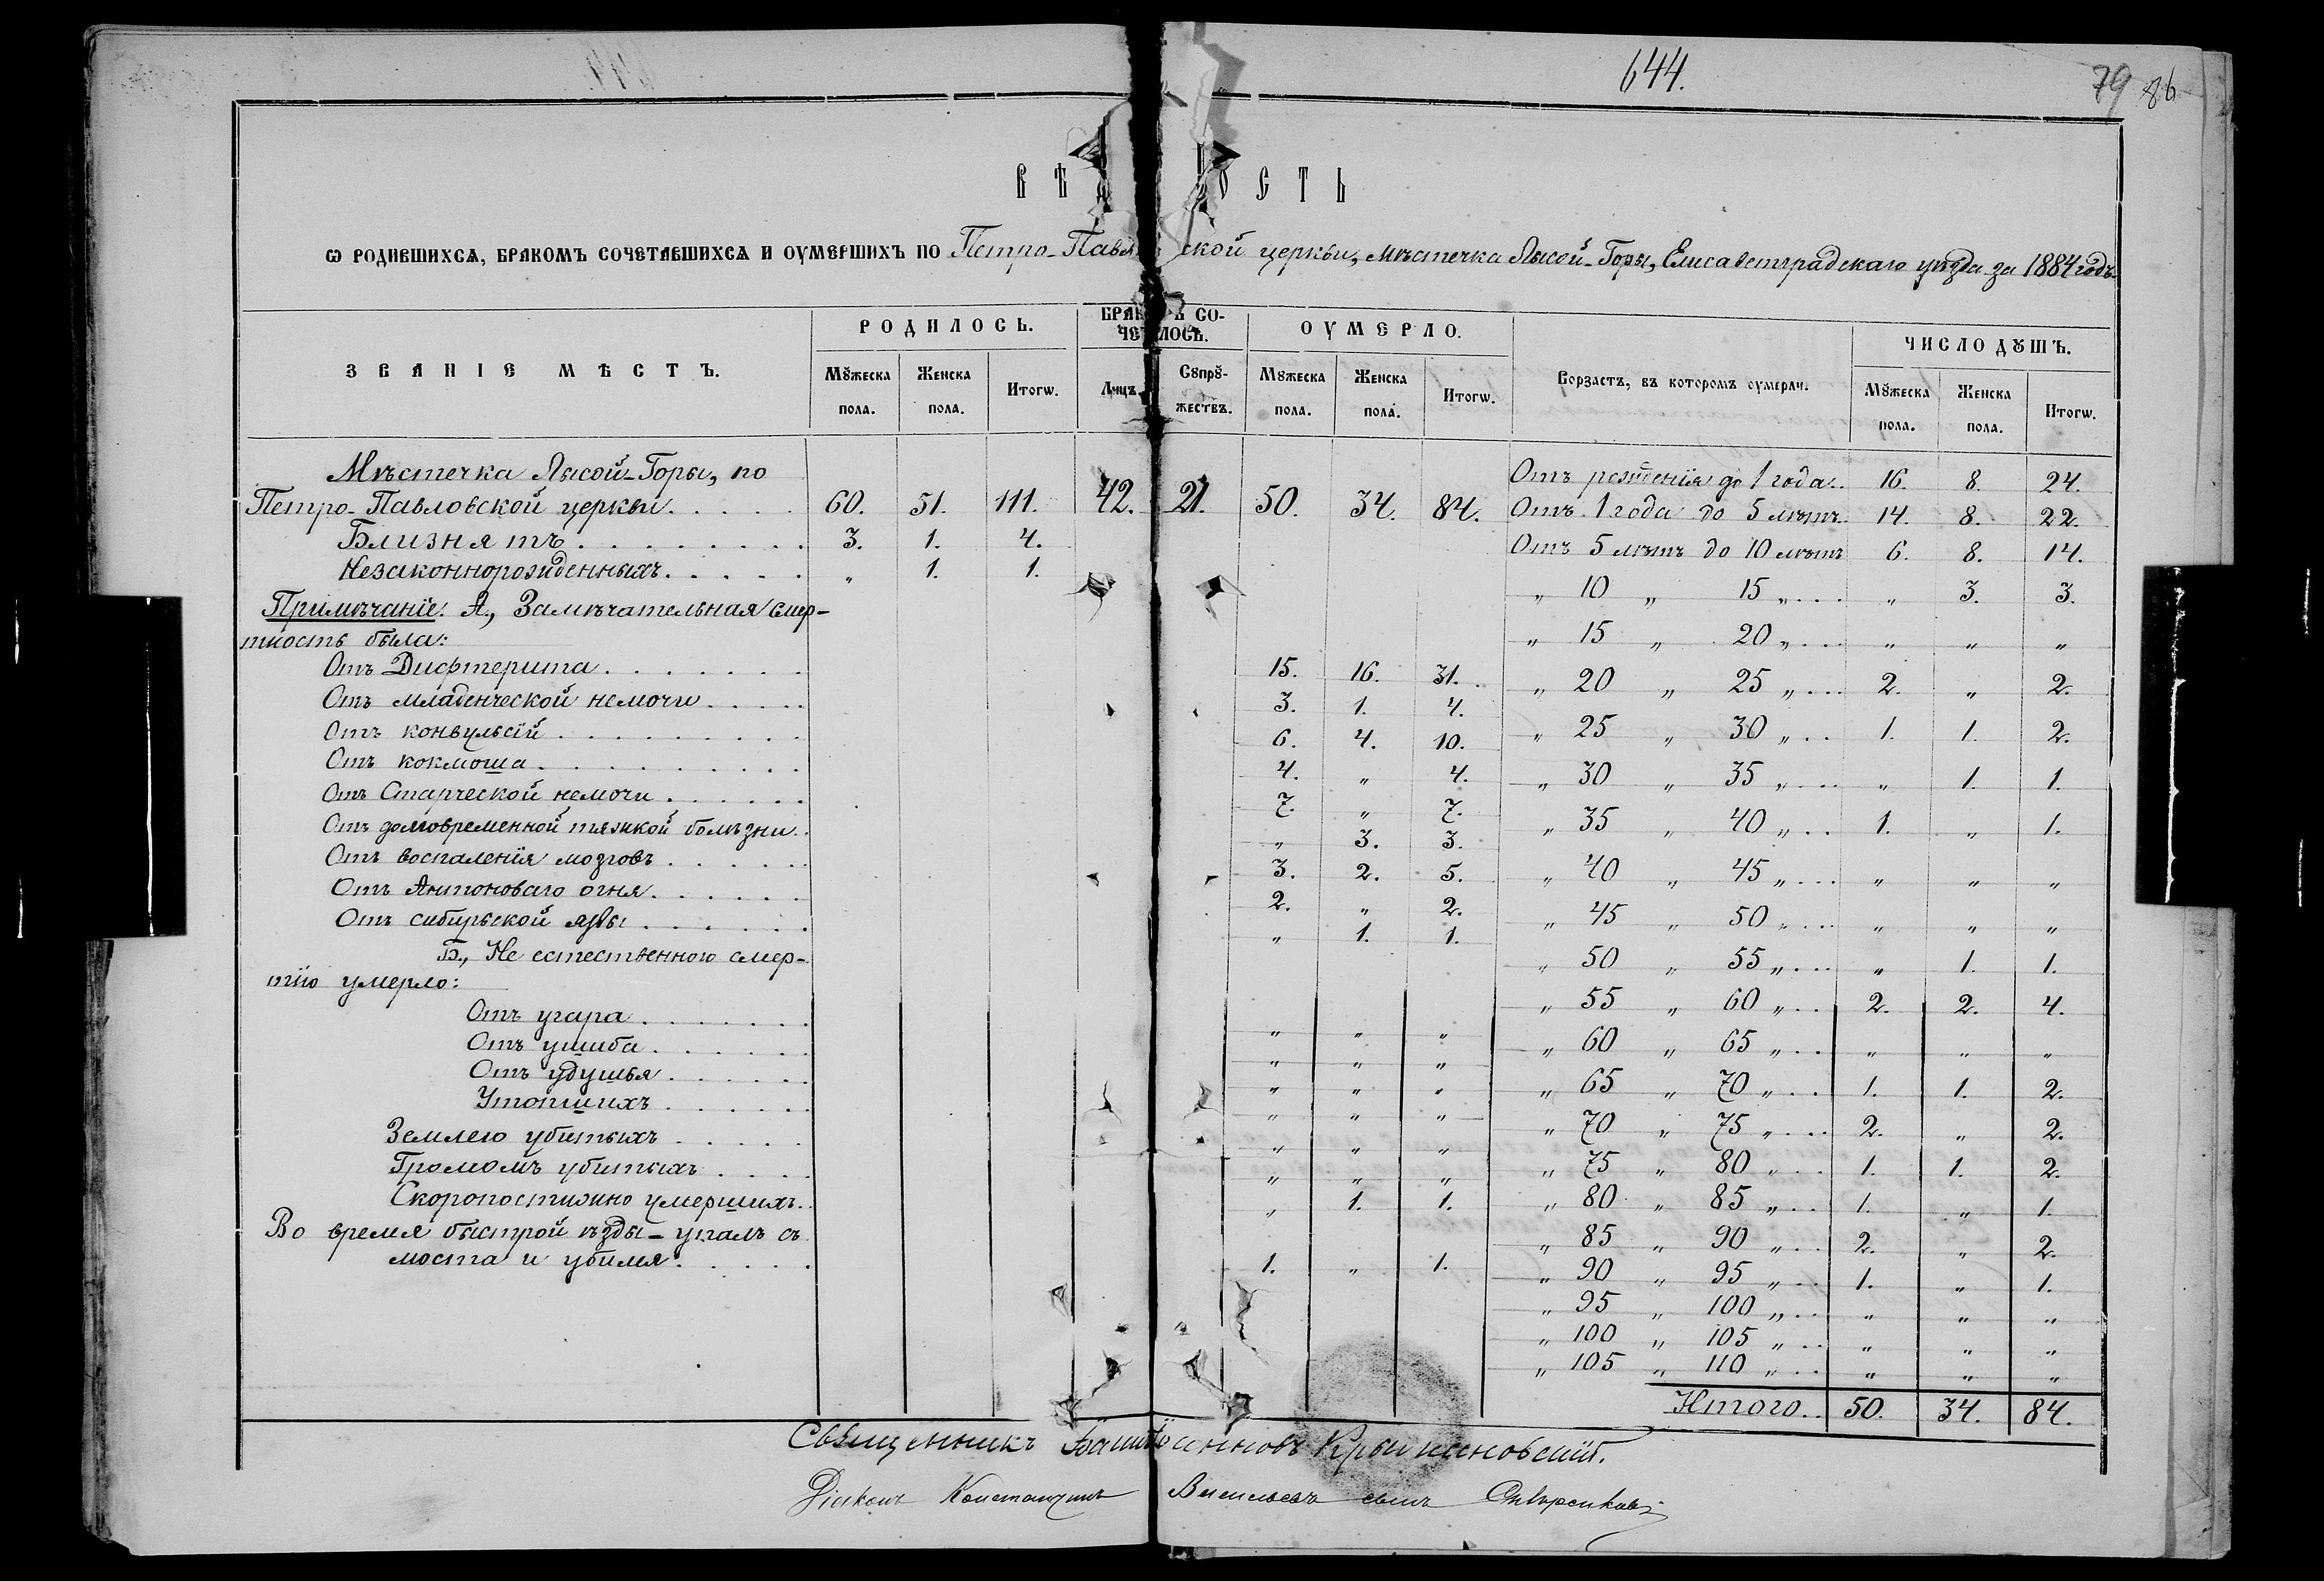 644.
79 86
ВѢДОМОСТЬ
Ѡ РОДИВШИХСѦ, БРАКОМЪ СОЧЕТАВШИХСѦ И ОУМЕРШИХЪ ПО Петро-Павловской церкви, мѣстечка Лысой-Горы, Елисаветградскаго уѣзда за 1884 годъ.
ЗВАНІЕ МѢСТЪ. РОДИЛОСЬ. БРАКОМЪ СО- ОУМЕРЛО. Ворзастъ, въ которомъ оумерли. ЧИСЛО ДꙊШЪ.
ЧЕТАЛОСЬ.
Мꙋжеска Женска Итогѡ. Лицъ. Сꙋпрꙋ- Мꙋжеска Женска Итогѡ. Мꙋжеска Женска Итогѡ.
пола. пола. жествъ. пола. пола. пола. пола.
Мѣстечка Лысой-Горы, по Отъ рожденія до 1 года.. 16. 8. 24.
Петро-Павловской церкви..... 60. 51. 111. 42. 21. 50. 34. 84. Отъ 1 года до 5 лѣтъ. 14. 8. 22.
Близнятъ......... 3. 1. 4. Отъ 5 лѣтъ до 10 лѣтъ 6. 8. 14.
Незаконнорожденныхъ..... „ 1. 1. „ 10 „ 15 „... „ 3. 3.
Примѣчаніе: А., Замѣчательная смер-
тность была: „ 15 „ 20 „... „ „ „
Отъ Дифтерита....... 15. 16. 31. „ 20 „ 25 „... 2. „ 2.
Отъ младенческой немочи..... 3. 1. 4.
Отъ конвульсій......... 6. 4. 10. „ 25 „ 30 „... 1. 1. 2.
Отъ коклюша.......... 4. „ 4. „ 30 „ 35 „... „ 1. 1.
Отъ Старческой немочи...... 7. „ 7.
Отъ долговременной тяжкой болѣзни.. „ 3. 3. „ 35 „ 40 „... 1. „ 1.
Отъ воспаленія мозговъ...... 3. 2. 5. „ 40 „ 45 „... „ „ „
Отъ Антоноваго огня...... 2. „ 2. „ 45 „ 50 „... „ „ „
Отъ сибирской язвы...... „ 1. 1.
Б., Не естественного смер- „ 50 „ 55 „... „ 1. 1.
тію умерло: „ 55 „ 60 „... 2. 2. 4.
Отъ угара....... „ „ „ „ 60 „ 65 „... „ „ „
Отъ ушиба...... „ „ „
Отъ удушья...... „ „ „ „ 65 „ 70 „... 1. 1. 2.
Утопшихъ...... „ „ „ „ 70 „ 75 „... 2. „ 2.
Землею убитыхъ..... „ „ „ „ 75 „ 80 „... 1. 1. 2.
Громомъ убитыхъ.... „ „ „
Скоропостижно умершихъ.. „ 1. 1. „ 80 „ 85 „... 1. „ 1.
Во время быстрой ѣзды - упалъ съ „ 85 „ 90 „... 2. „ 2.
моста и убился..... 1. „ 1. „ 90 „ 95 „... 1. „ 1.
„ 95 „ 100 „... „ „ „
„ 100 „ 105 „... „ „ „
„ 105 „ 110 „... „ „ „
Итого.. 50. 34. 84.
Священникъ
Діаконъ Константинъ Васильевъ сынъ